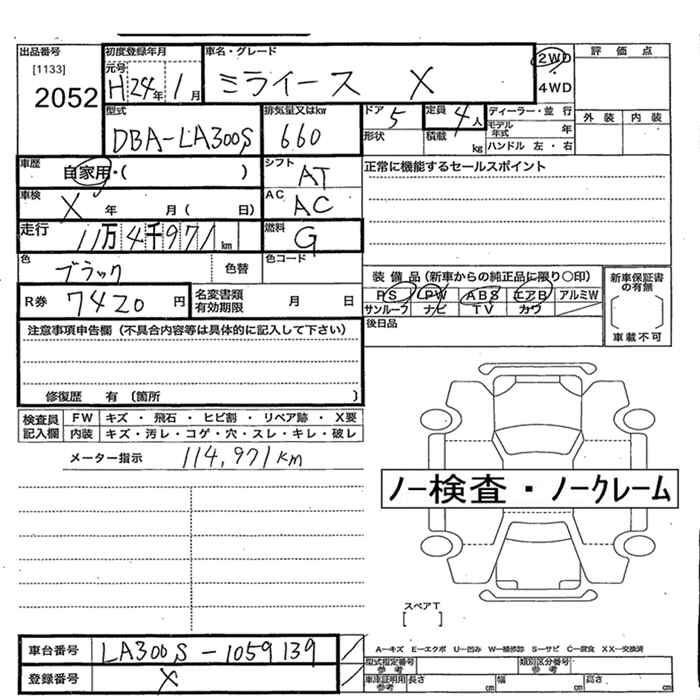 出品番号 初度登録年月 車名・グレード 評価点
[1133] 元号 2WD
2052 H 24年 1月 ミライース X 4WD
型式 排気量又はkw ドア 定員 ディーラー・並行 外装 内装
DBA-LA300S 660 5 4人 モデル年式 年
形状 積載 kg ハンドル 左・右
車歴 自家用・( ) シフト AT 正常に機能するセールスポイント
車検 X 年 月( 日) AC AC
走行 11万4千971km 燃料 G
色 ブラック 色替 色コード 装備品(新車からの純正品に限り〇印) 新車保証書の有無
R券 7420円 名変書類有効期限 月 日 PS PW ABS エアB アルミW
サンルーフ ナビ TV カワ
注意事項申告欄(不具合内容等は具体的に記入して下さい) 後日品 車載不可
修復歴 有 〔箇所 〕
検査員記入欄 FW キズ・飛石・ヒビ割・リペア跡・X要
内装 キズ・汚レ・コゲ・穴・スレ・キレ・破レ
メーター指示 114,971km
ノー検査・ノークレーム
スペアT
[ ]
車台番号 LA300S-1059139 A－キズ E－エクボ U－凹み W－補修跡 S－サビ C－腐食 XX－交換済
登録番号 X 型式指定番号参考 類別区分番号参考
車庫証明用参考 長さ cm 幅 cm 高さ cm